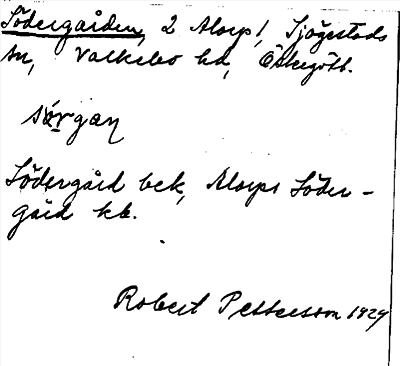 Södergården, 2 Alorp 1, Sjögestads
sn, Valkebo hd, Östergötl.
sörgan
Södergård bek, Alorps Söder-
gård kb.
Robert Pettersson 1929